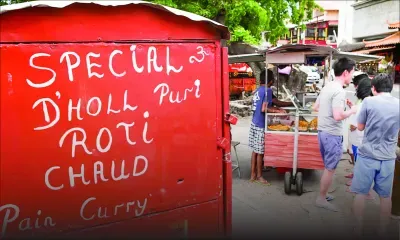 SPECIAL
D'HOLL Puri
ROTI
CHAUD
Pain Curry